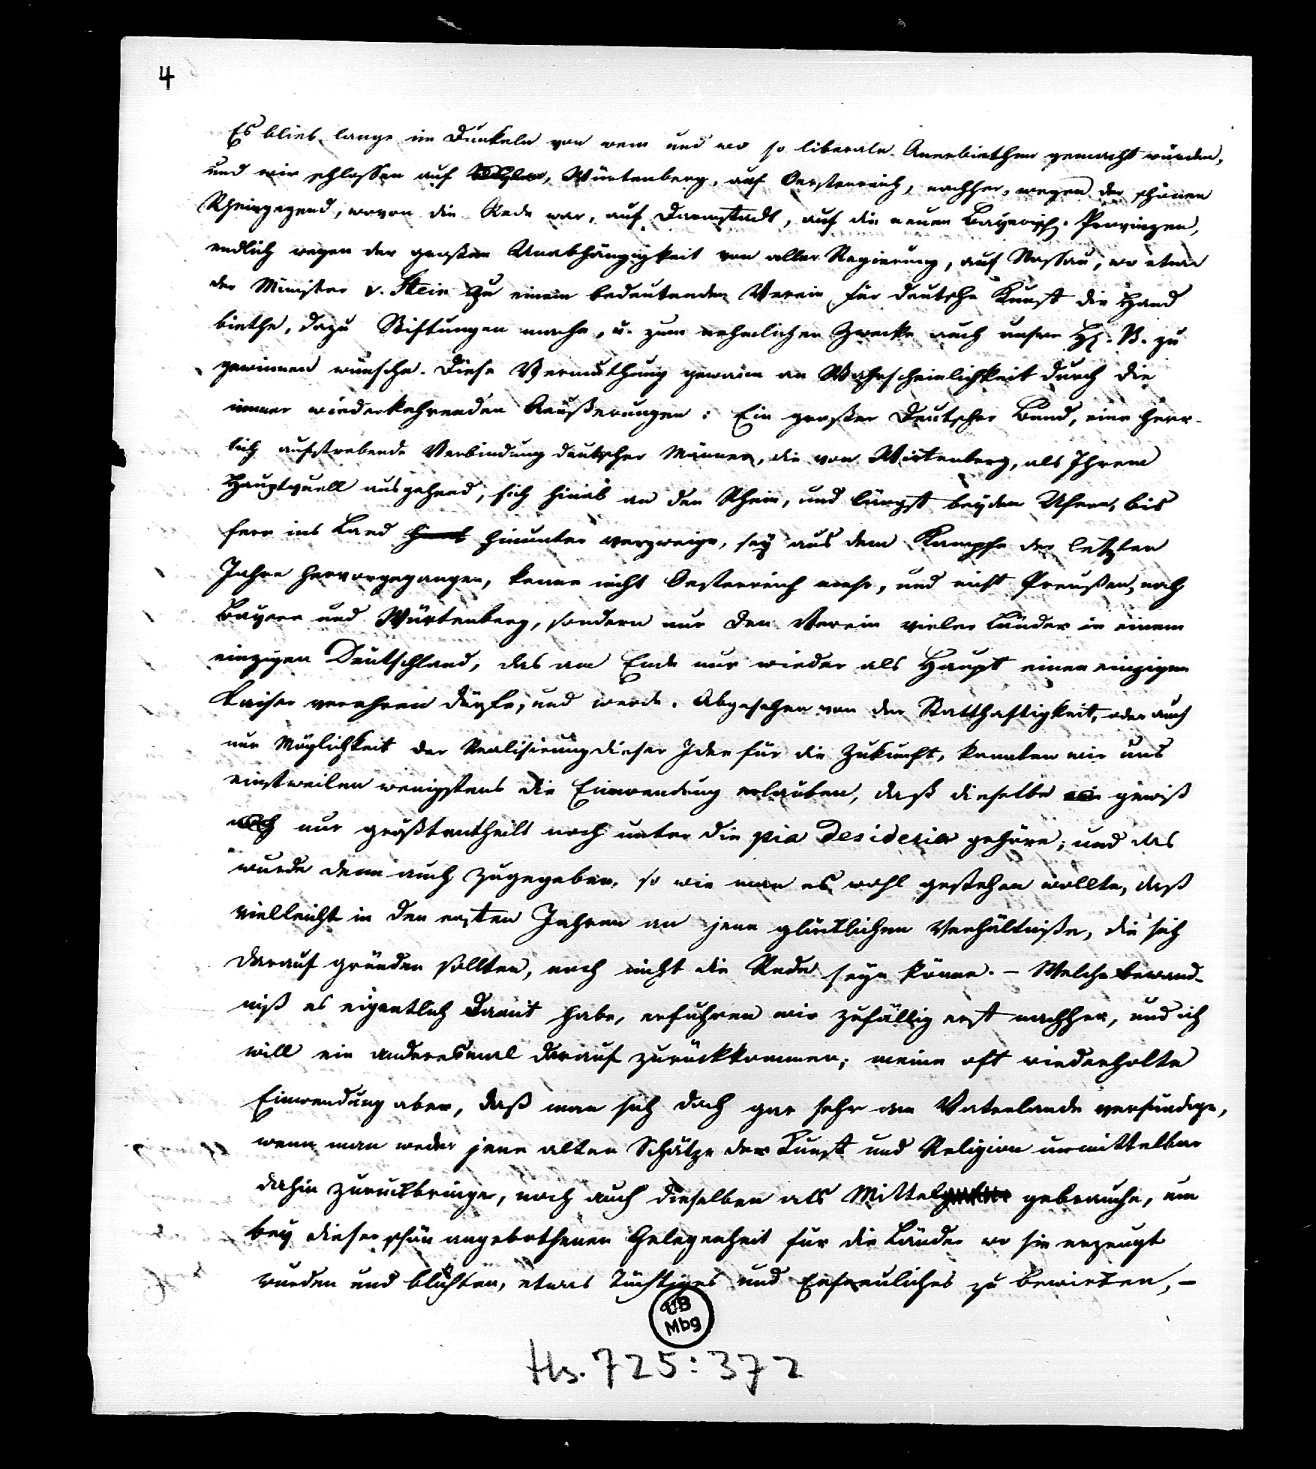 4
Es blieb lange im Dunkeln von wem und wo so liberale Anerbiethen gemacht würden,
und wir schlossen auf Würtenberg, auf Oesterreich, nachher, wegen der schönen
Rheingegend, wovon die Rede war, auf Darmstadt, auf die neuen Bayerisch. Provinzen,
endlich wegen der großen Unabhängigkeit von aller Regierung, auf Nassau, wo etwa
der Minister v. Stein zu einem bedeutenden Verein für deutsche Kunst die Hand
biethe, dazu Stiftungen mache, u. zum nehmlichen Zwecke auch unsre H. B. zu
gewinnen wünsche. Diese Vermuthung gewann an Wahrscheinlichkeit durch die
immer wiederkehrenden Aeußerungen: Ein großer Deutscher Bund, eine herr-
lich aufstrebende Verbindung deutscher Männer, die von Wirtenberg, als Ihrem
Hauptquell ausgehend, sich hinab an den Rhein, und längst beyden Ufern, bis
fern ins Land hinunter verzweige, sey aus dem Kampfe der letzten
Jahre hervorgegangen, kenne nicht Oesterreich mehr, und nicht Preußen, noch
Bayern und Würtenberg, sondern nur den Verein vieler Länder in einem
einzigen Deutschland, das am Ende nur wieder als Haupt einen einzigen
Kaiser verehren dürfe, und werde. Abgesehen von der Statthaftigkeit, oder auch
nur Möglichkeit der Realisirung dieser Idee für die Zukunft, konnten wir uns
einstweilen wenigstens die Einwendung erlauben, daß dieselbe gewiß
nur größtentheils noch unter die pia Desideria gehöre; und das
wurde denn auch zugegeben, so wie man es wohl gestehen wollte, daß
vielleicht in den ersten Jahren an jene glücklichen Verhältniße, die sich
darauf gründen sollten, noch nicht die Rede seyn könne. – Welche Bewand-
niß es eigentlich damit habe, erfuhren wir zufällig erst nachher, und ich
will ein anderesmal darauf zurückkommen; meine oft wiederholte
Einwendung aber, daß man sich doch gar sehr am Vaterlande versündige,
wenn man weder jene alten Schätze der Kunst und Religion unmittelbar
dahin zurückbringe, noch auch dieselben als Mittel gebrauche, um
bey dieser schön angebothenen Gelegenheit für die Länder wo sie erzeugt
wurden und blühten, etwas Tüchtiges und Erfreuliches zu bewirken, –
UB
Mbg
Hs. 725:372